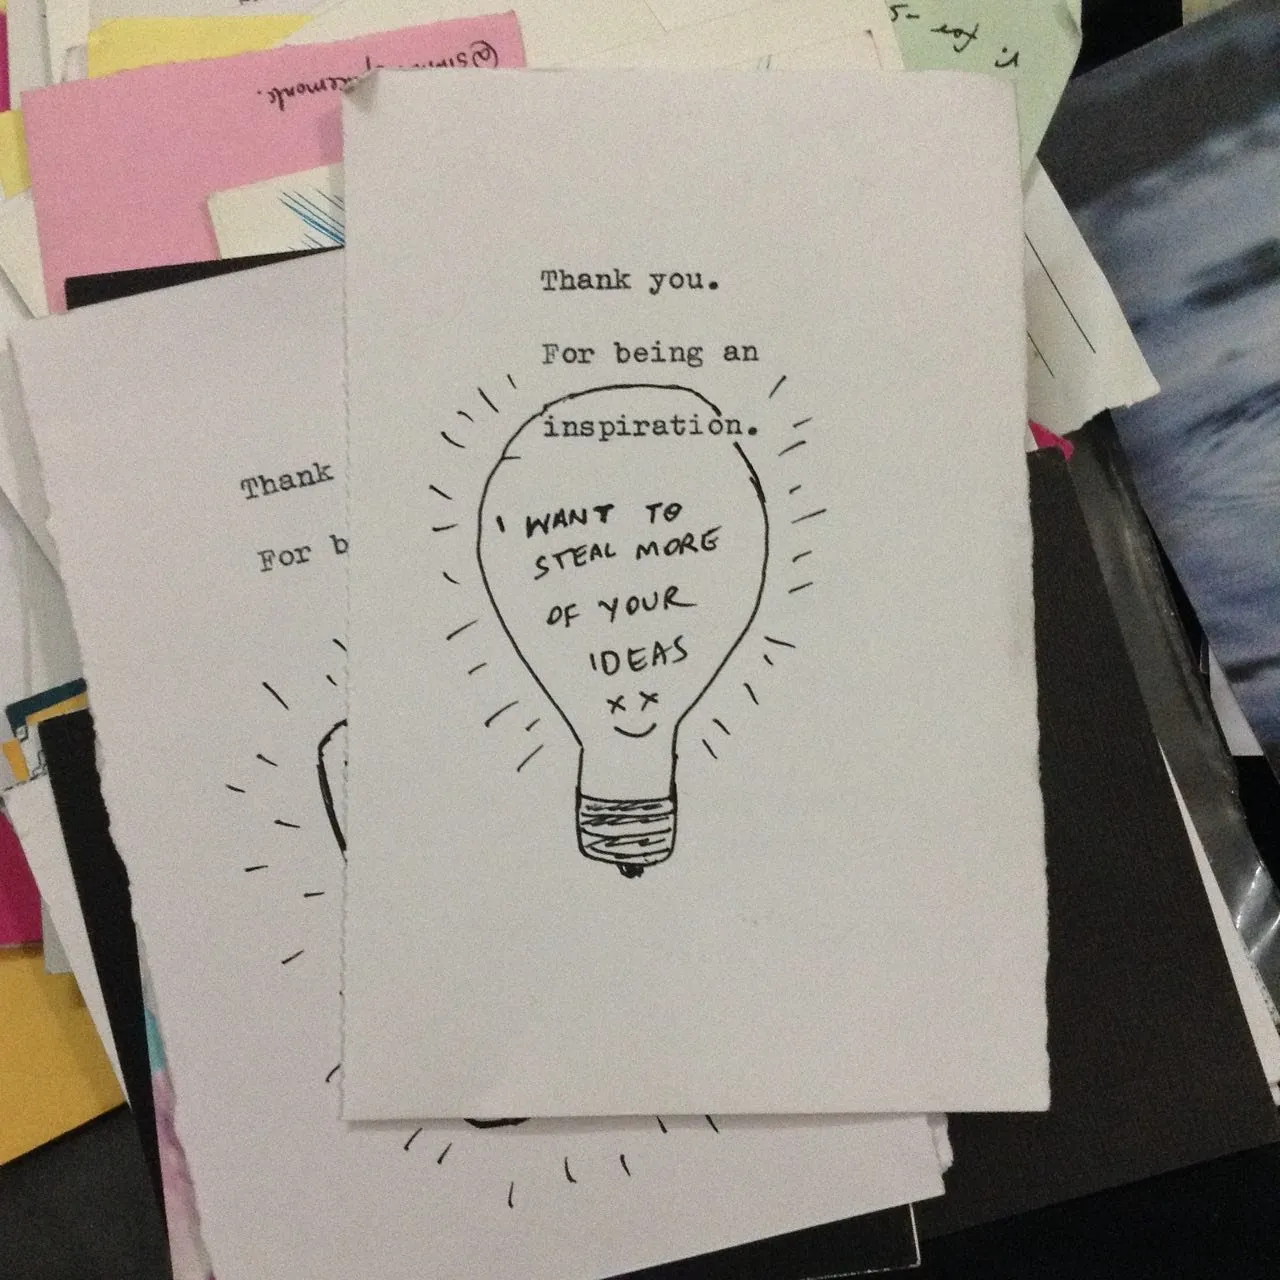 Thank you.
For being an
inspiration.
I WANT TO
STEAL MORE
OF YOUR
IDEAS
Thank
For b